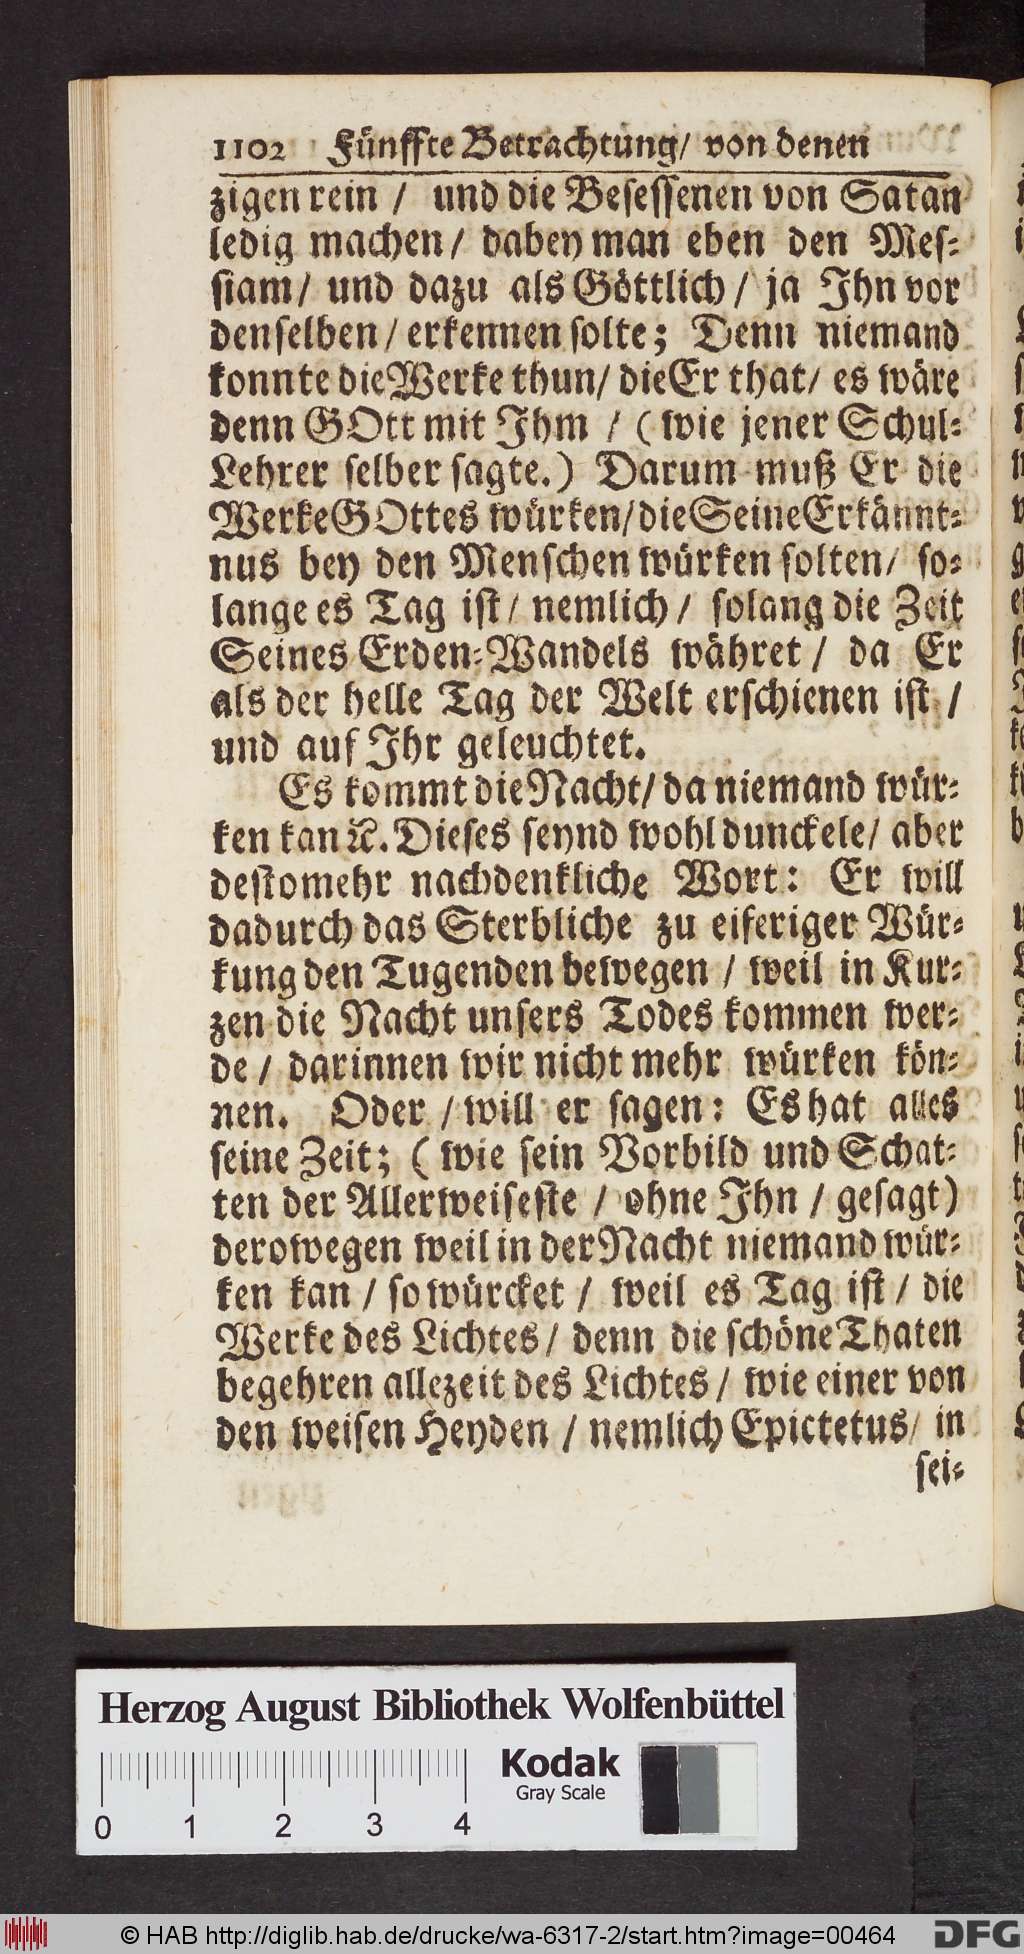 1102 Fünffte Betrachtung/ von denen
zigen rein / und die Besessenen von Satan
ledig machen/ dabey man eben den Mes-
siam/ und dazu als Göttlich/ ja Ihn vor
denselben/ erkennen solte; Denn niemand
konnte die Werke thun/ die Er that/ es wäre
denn GOtt mit Ihm / (wie jener Schul-
Lehrer selber sagte.) Darum muß Er die
Werke GOttes würken/ die Seine Erkännt-
nus bey den Menschen würken solten/ so-
lange es Tag ist/ nemlich/ solang die Zeit
Seines Erden-Wandels währet/ da Er
als der helle Tag der Welt erschienen ist /
und auf Ihr geleuchtet.
Es kommt die Nacht/ da niemand wür-
ken kan ꝛc. Dieses seynd wohl dunckele/ aber
destomehr nachdenkliche Wort: Er will
dadurch das Sterbliche zu eiferiger Wür-
kung den Tugenden bewegen / weil in Kur-
zen die Nacht unsers Todes kommen wer-
de / darinnen wir nicht mehr würken kön-
nen. Oder / will er sagen: Es hat alles
seine Zeit; (wie sein Vorbild und Schat-
ten der Allerweiseste / ohne Ihn / gesagt)
derowegen weil in der Nacht niemand wür-
ken kan / so würcket / weil es Tag ist / die
Werke des Lichtes/ denn die schöne Thaten
begehren allezeit des Lichtes/ wie einer von
den weisen Heyden / nemlich Epictetus/ in
sei-
Herzog August Bibliothek Wolfenbüttel
Kodak
Gray Scale
0 1 2 3 4
© HAB http://diglib.hab.de/drucke/wa-6317-2/start.htm?image=00464
DFG